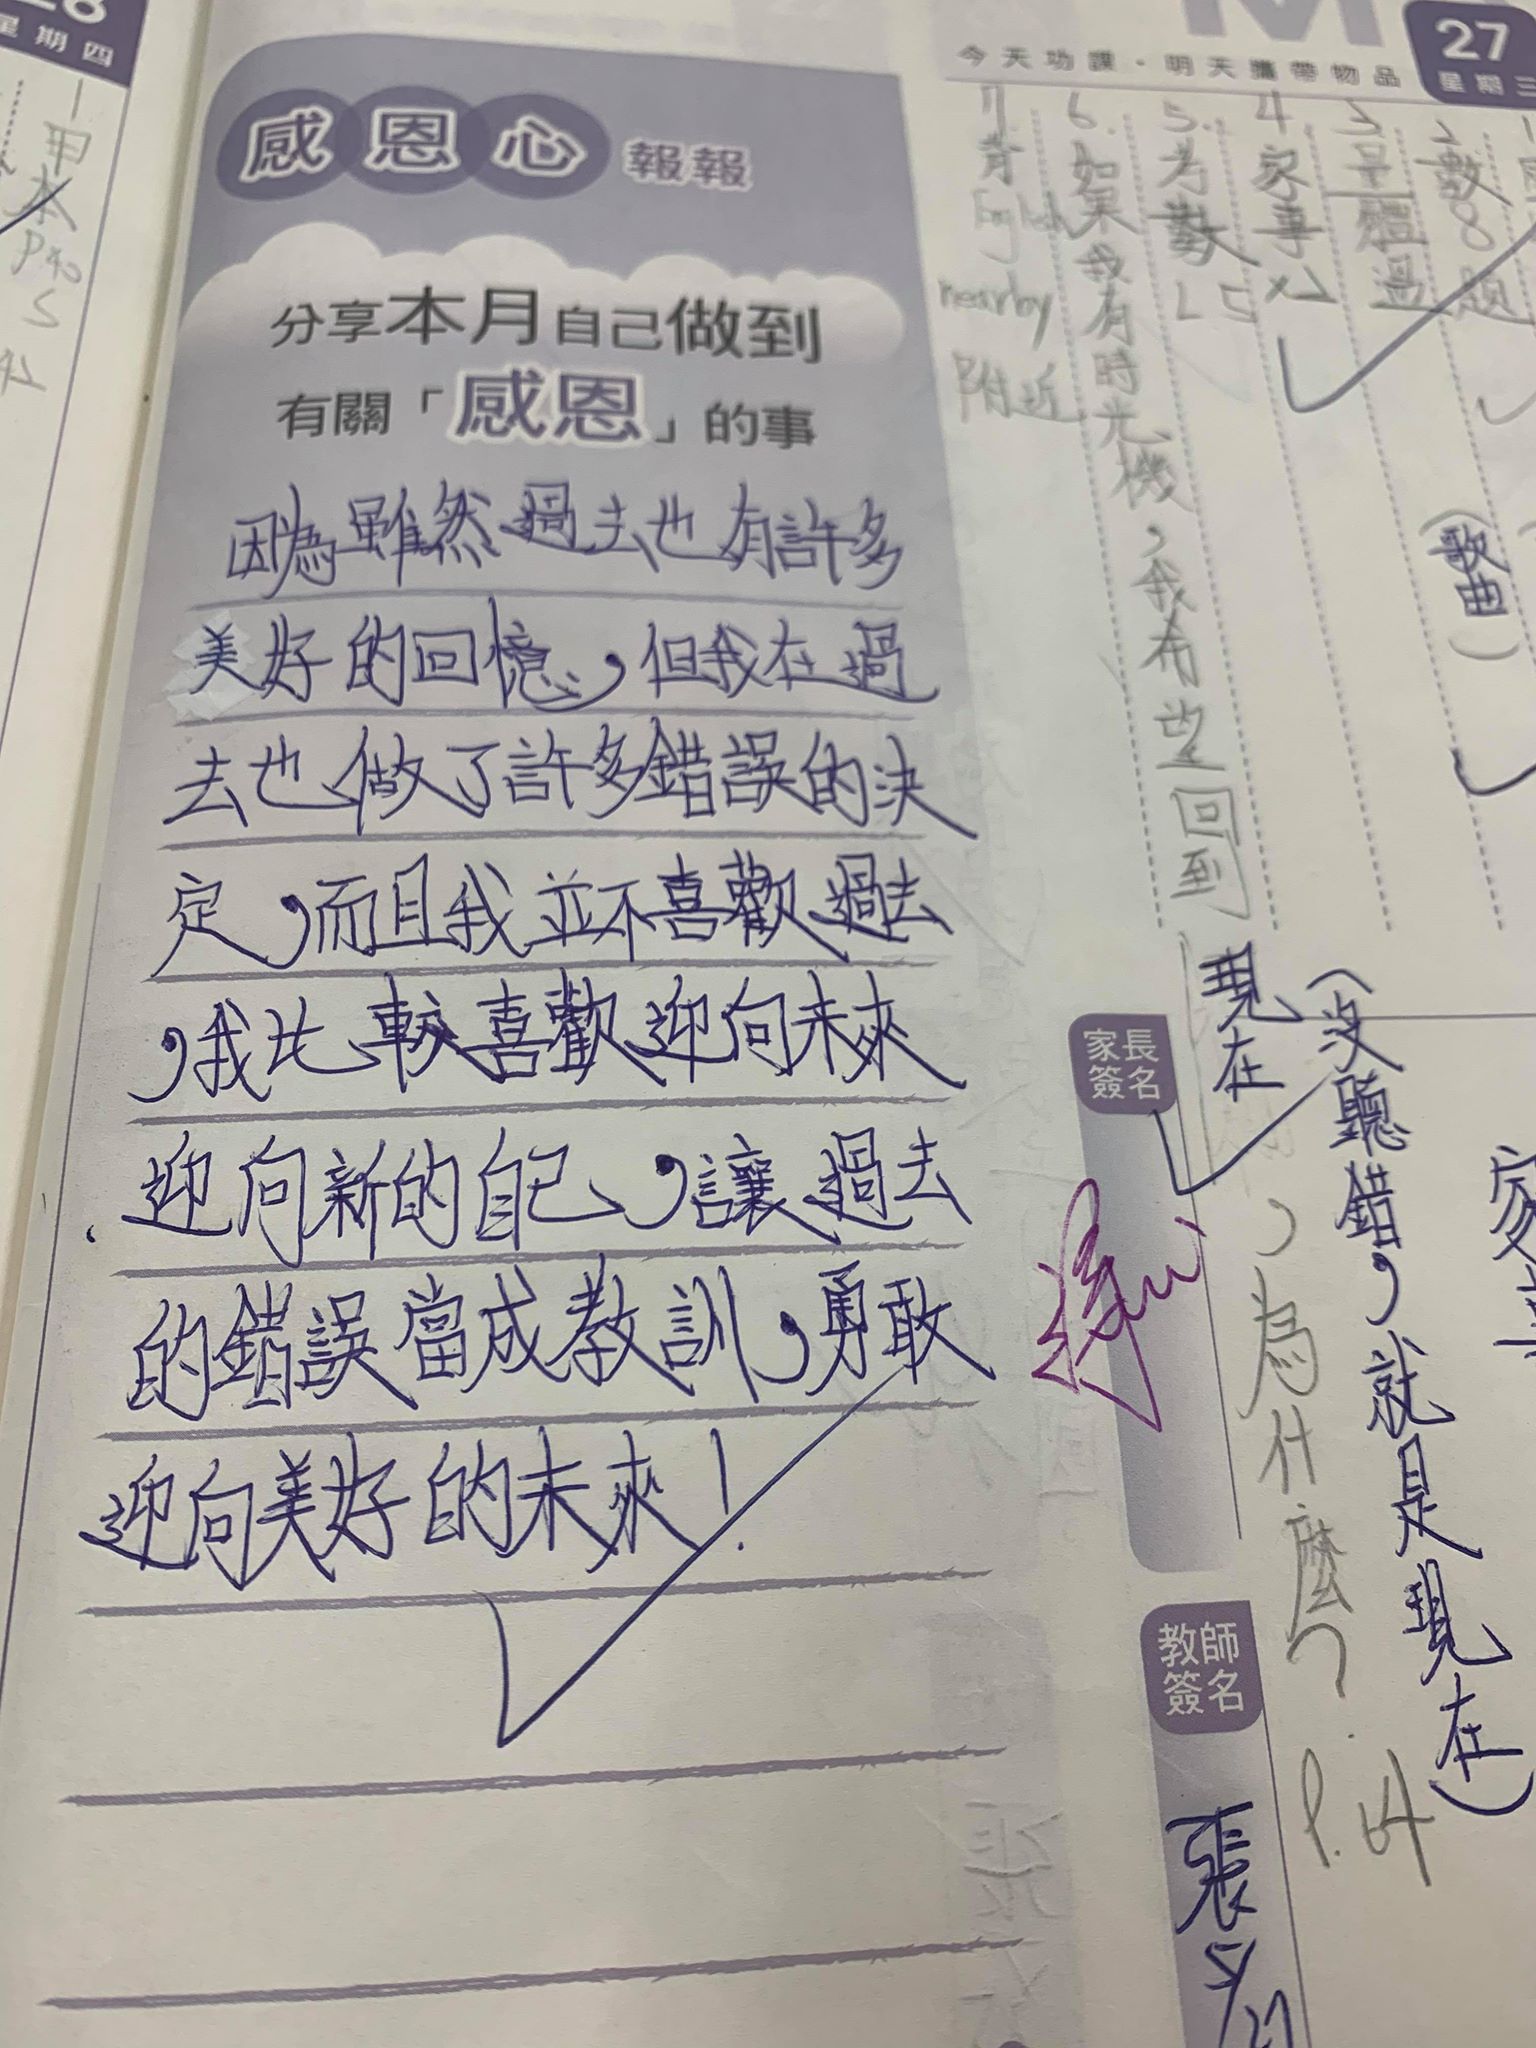 28
星期四
甲本P40
感恩心 報報
分享本月自己做到
有關「感恩」的事
因為雖然過去也有許多
美好的回憶，但我在過
去也做了許多錯誤的決
定，而且我並不喜歡過去
，我比較喜歡迎向未來
迎向新的自己，讓過去
的錯誤當成教訓，勇敢
迎向美好的未來！
27
今天功課・明天攜帶物品
2.數8題
(歌曲)
4家事x2
5.考數L5
6.如果我有時光機，我希望回到
現在
，為什麼？
P.64
(沒聽錯，就是現在)
7背English
nearby
附近
家長
簽名
教師
簽名
張
5/27